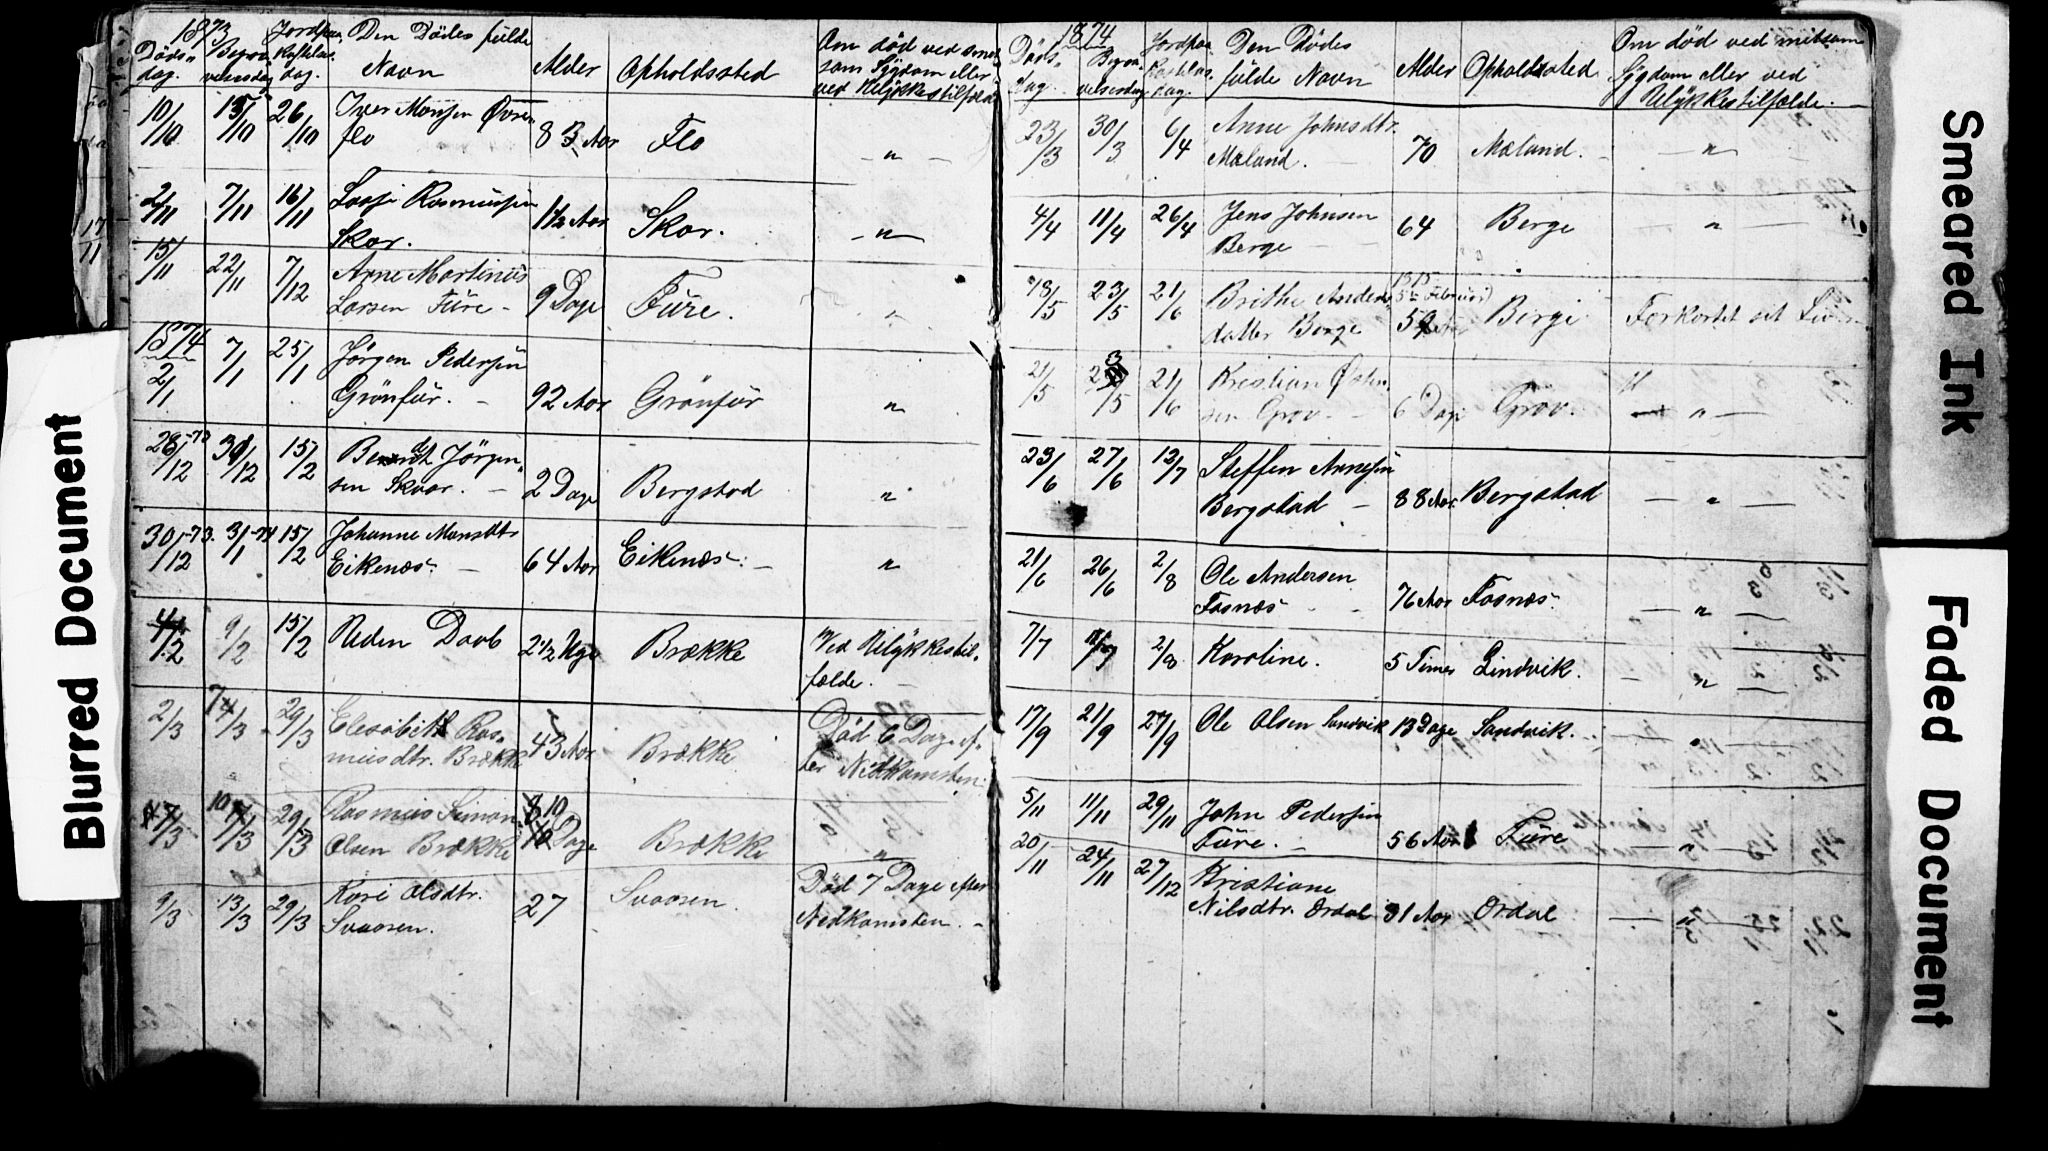 1873
Döds- dag. Begra- velsesdag Jordpaa- kastelses- dag. Den Dödes fulde Navn Alder Opholdssted Om död ved smit- som Sygdom eller ved Ulykkestilfælde
10/10 15/10 26/10 Iver Monsen Övre- flo 83 Aar Flo - " -
2/11 7/11 16/11 Lasse Rasmussen Skor. 1 1/2 Aar Skor. - " -
15/11 22/11 7/12 Arne Martinus Larsen Füre - 9 Dage Füre. "
1874
2/1 7/1 25/1 Jörgen Pedersen Grönfür. - 92 Aar Grönfür "
28/12 -73 30/12 15/2 Berndt Jörgen- sen Skaar. - 2 Dage Bergstad "
30/12 -73. 3/1 -74 15/2 Johanne Monsdtr Eikenæs. - 64 Aar Eikenæs. - "
4/2 9/2 15/2 Uden Daab 2 1/2 Uge Brække Ved Ulykkestil- fælde. -
2/3 7/3 29/3 Elisabeth Ras- musdtr. Brække 43 Aar Brække Död 6 Dage ef- ter Nedkomsten.
4/3 10/3 29/3 Rasmus Simon Olsen Brække 10 Dage Brække "
9/3 13/3 29/3 Kari Olsdtr. Svaasen. 27 Svaasen. Död 7 Dage efter Nedkomsten. -
1874
Döds- dag. Begra- velsesdag Jordpaa- kastelses- dag. Den Dödes fulde Navn Alder Opholdssted Om död ved smitsom Sygdom eller ved Ulykkestilfælde.
23/3 30/3 6/4 Anne Johnsdtr. Mæland. - 70 Mæland. - - " -
4/4 11/4 26/4 Jens Johnsen Berge - 64 Berge - " -
18/5 23/5 21/6 Brithe Anders datter Berge 59 Berge Forkortet sit Liv
21/5 23/5 21/6 Kristian Östen- sen Grov. - 6 Dage Grov. - " -
23/6 27/6 12/7 Steffen Arnesen Bergstad - 88 Aar Bergstad - " -
21/6 26/6 2/8 Ole Andersen Fosnæs - 76 Aar Fosnæs. - " -
7/7 11/7 2/8 Karoline. 5 Timer Lindvik. - " -
17/9 21/9 27/9 Ole Olsen Sandvik 13 Dage Sandvik. - " -
5/11 11/11 29/11 John Pedersen Füre. - 56 Aar Füre - " -
20/11 24/11 27/12 Kristiane Nilsdtr. Ordal 31 Aar Ordal - " -
Blurred Document
Smeared Ink
Faded Document